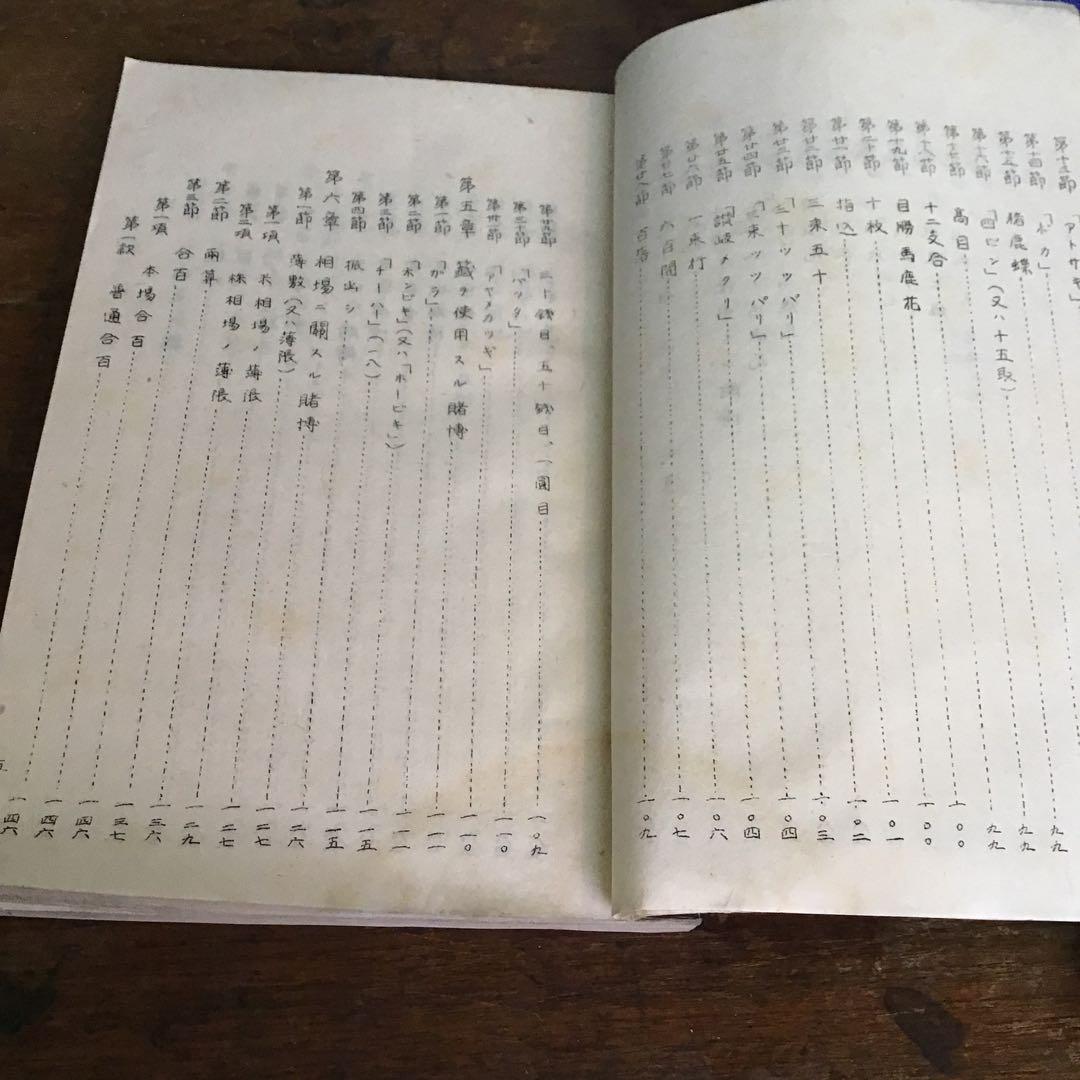 第十三節 「アトサキ」 九九
第十四節 「ボカ」 九九
第十五節 猪鹿蝶 九九
第十六節 「四ピン」(又ハ十五取) 九九
第十七節 高目 一〇〇
第十八節 十二支合 一〇〇
第十九節 目勝馬鹿花 一〇一
第二十節 十枚 一〇二
第廿一節 指込 一〇三
第廿二節 三束五十 一〇四
第廿三節 「三十ツッパリ」 一〇四
第廿四節 「三束ツッパリ」 一〇六
第廿五節 「讃岐メクリ」 一〇七
第廿六節 一束打 一〇九
第廿七節 六百間
第廿八節 百落
第廿九節 二十錢目、五十錢目、一圓目 一〇九
第三十節 「バッタ」 一一〇
第卅一節 「アヤメカツギ」 一一〇
第五章 籤ヲ使用スル賭博 一一一
第一節 「ガラ」 一一一
第二節 「ホンビキ」(又ハ「ホービキ」) 一一五
第三節 「チーハー」(一八) 一一五
第四節 抵出シ 一二六
第六章 相場ニ關スル賭博 一二七
第一節 薄敷(又ハ薄張) 一二七
第一項 米相場ノ薄張 一二九
第二項 株相場ノ薄張 一三六
第二節 兩算 一三七
第三節 合百 一四六
第一項 本場合百 一四六
第一款 普通合百 一四六